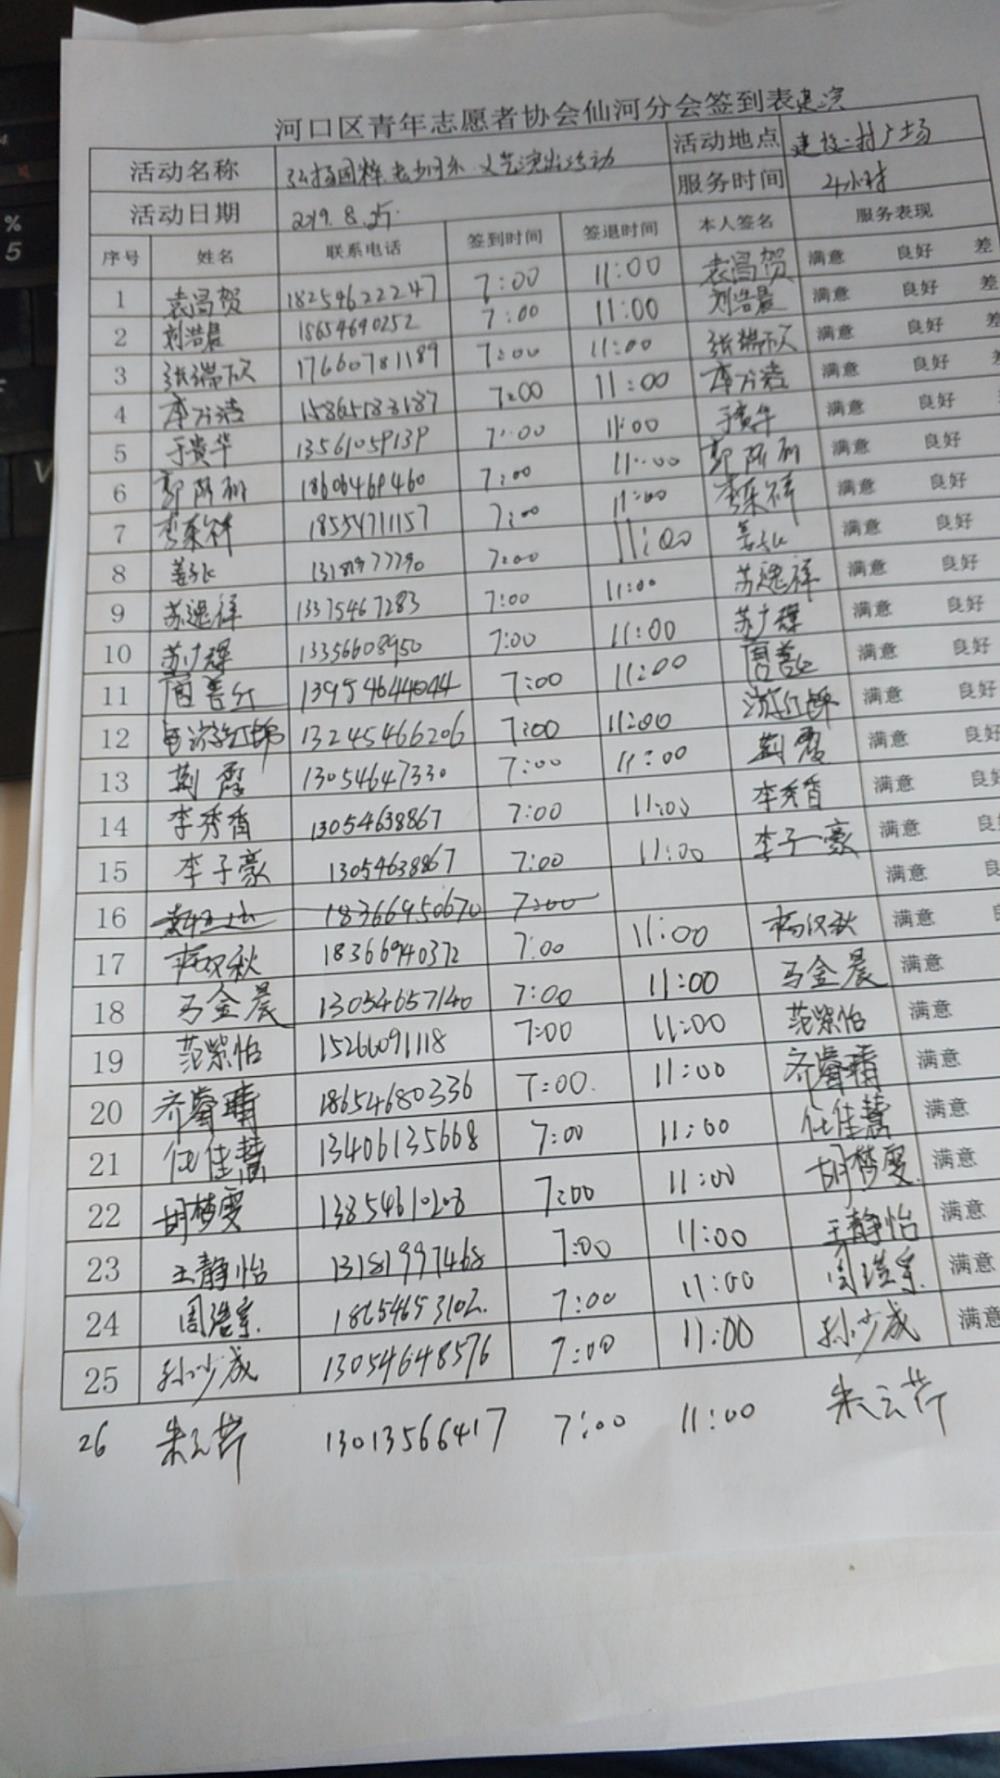 河口区青年志愿者协会仙河分会签到表
活动名称 弘扬国粹 文艺演出活动 活动地点 建设二村广场
活动日期 2019.8.25. 服务时间 4小时
序号 姓名 联系电话 签到时间 签退时间 本人签名 服务表现
1 袁冯贺 18254622247 7:00 11:00 袁冯贺 满意 良好 差
2 刘浩晨 18654690252 7:00 11:00 刘浩晨 满意 良好 差
3 17660781189 7:00 11:00 满意 良好 差
4 李万洁 15865183187 7:00 11:00 李万洁 满意 良好 差
5 于贵华 13561059139 7:00 11:00 于贵华 满意 良好
6 18606469460 7:00 11:00 满意 良好
7 李荣祥 18554711157 7:00 11:00 李荣祥 满意 良好
8 7:00 11:00 满意 良好
9 苏延祥 13375467283 7:00 11:00 苏延祥 满意 良好
10 苏广辉 13356608950 7:00 11:00 苏广辉 满意 良好
11 周善红 13954644044 7:00 11:00 周善红 满意 良好
12 游红锦 13245466206 7:00 11:00 游红锦 满意 良好
13 荆霞 13054647330 7:00 11:00 荆霞 满意 良好
14 李秀香 13054638867 7:00 11:00 李秀香 满意 良好
15 李子豪 13054638867 7:00 11:00 李子豪 满意 良
16 18366950670 7:00 满意 良
17 杨汉秋 18366940372 7:00 11:00 杨汉秋 满意
18 马金晨 13054657140 7:00 11:00 马金晨 满意
19 范紫怡 15266091118 7:00 11:00 范紫怡 满意
20 齐睿晴 18654680336 7:00 11:00 齐睿晴 满意
21 任佳慧 13406135668 7:00 11:00 任佳慧 满意
22 胡梦雯 13854610208 7:00 11:00 胡梦雯 满意
23 王静怡 13181997468 7:00 11:00 王静怡 满意
24 周浩宇 18654653102 7:00 11:00 周浩宇 满意
25 孙少成 13054648576 7:00 11:00 孙少成 满意
26 朱云芹 13013566417 7:00 11:00 朱云芹